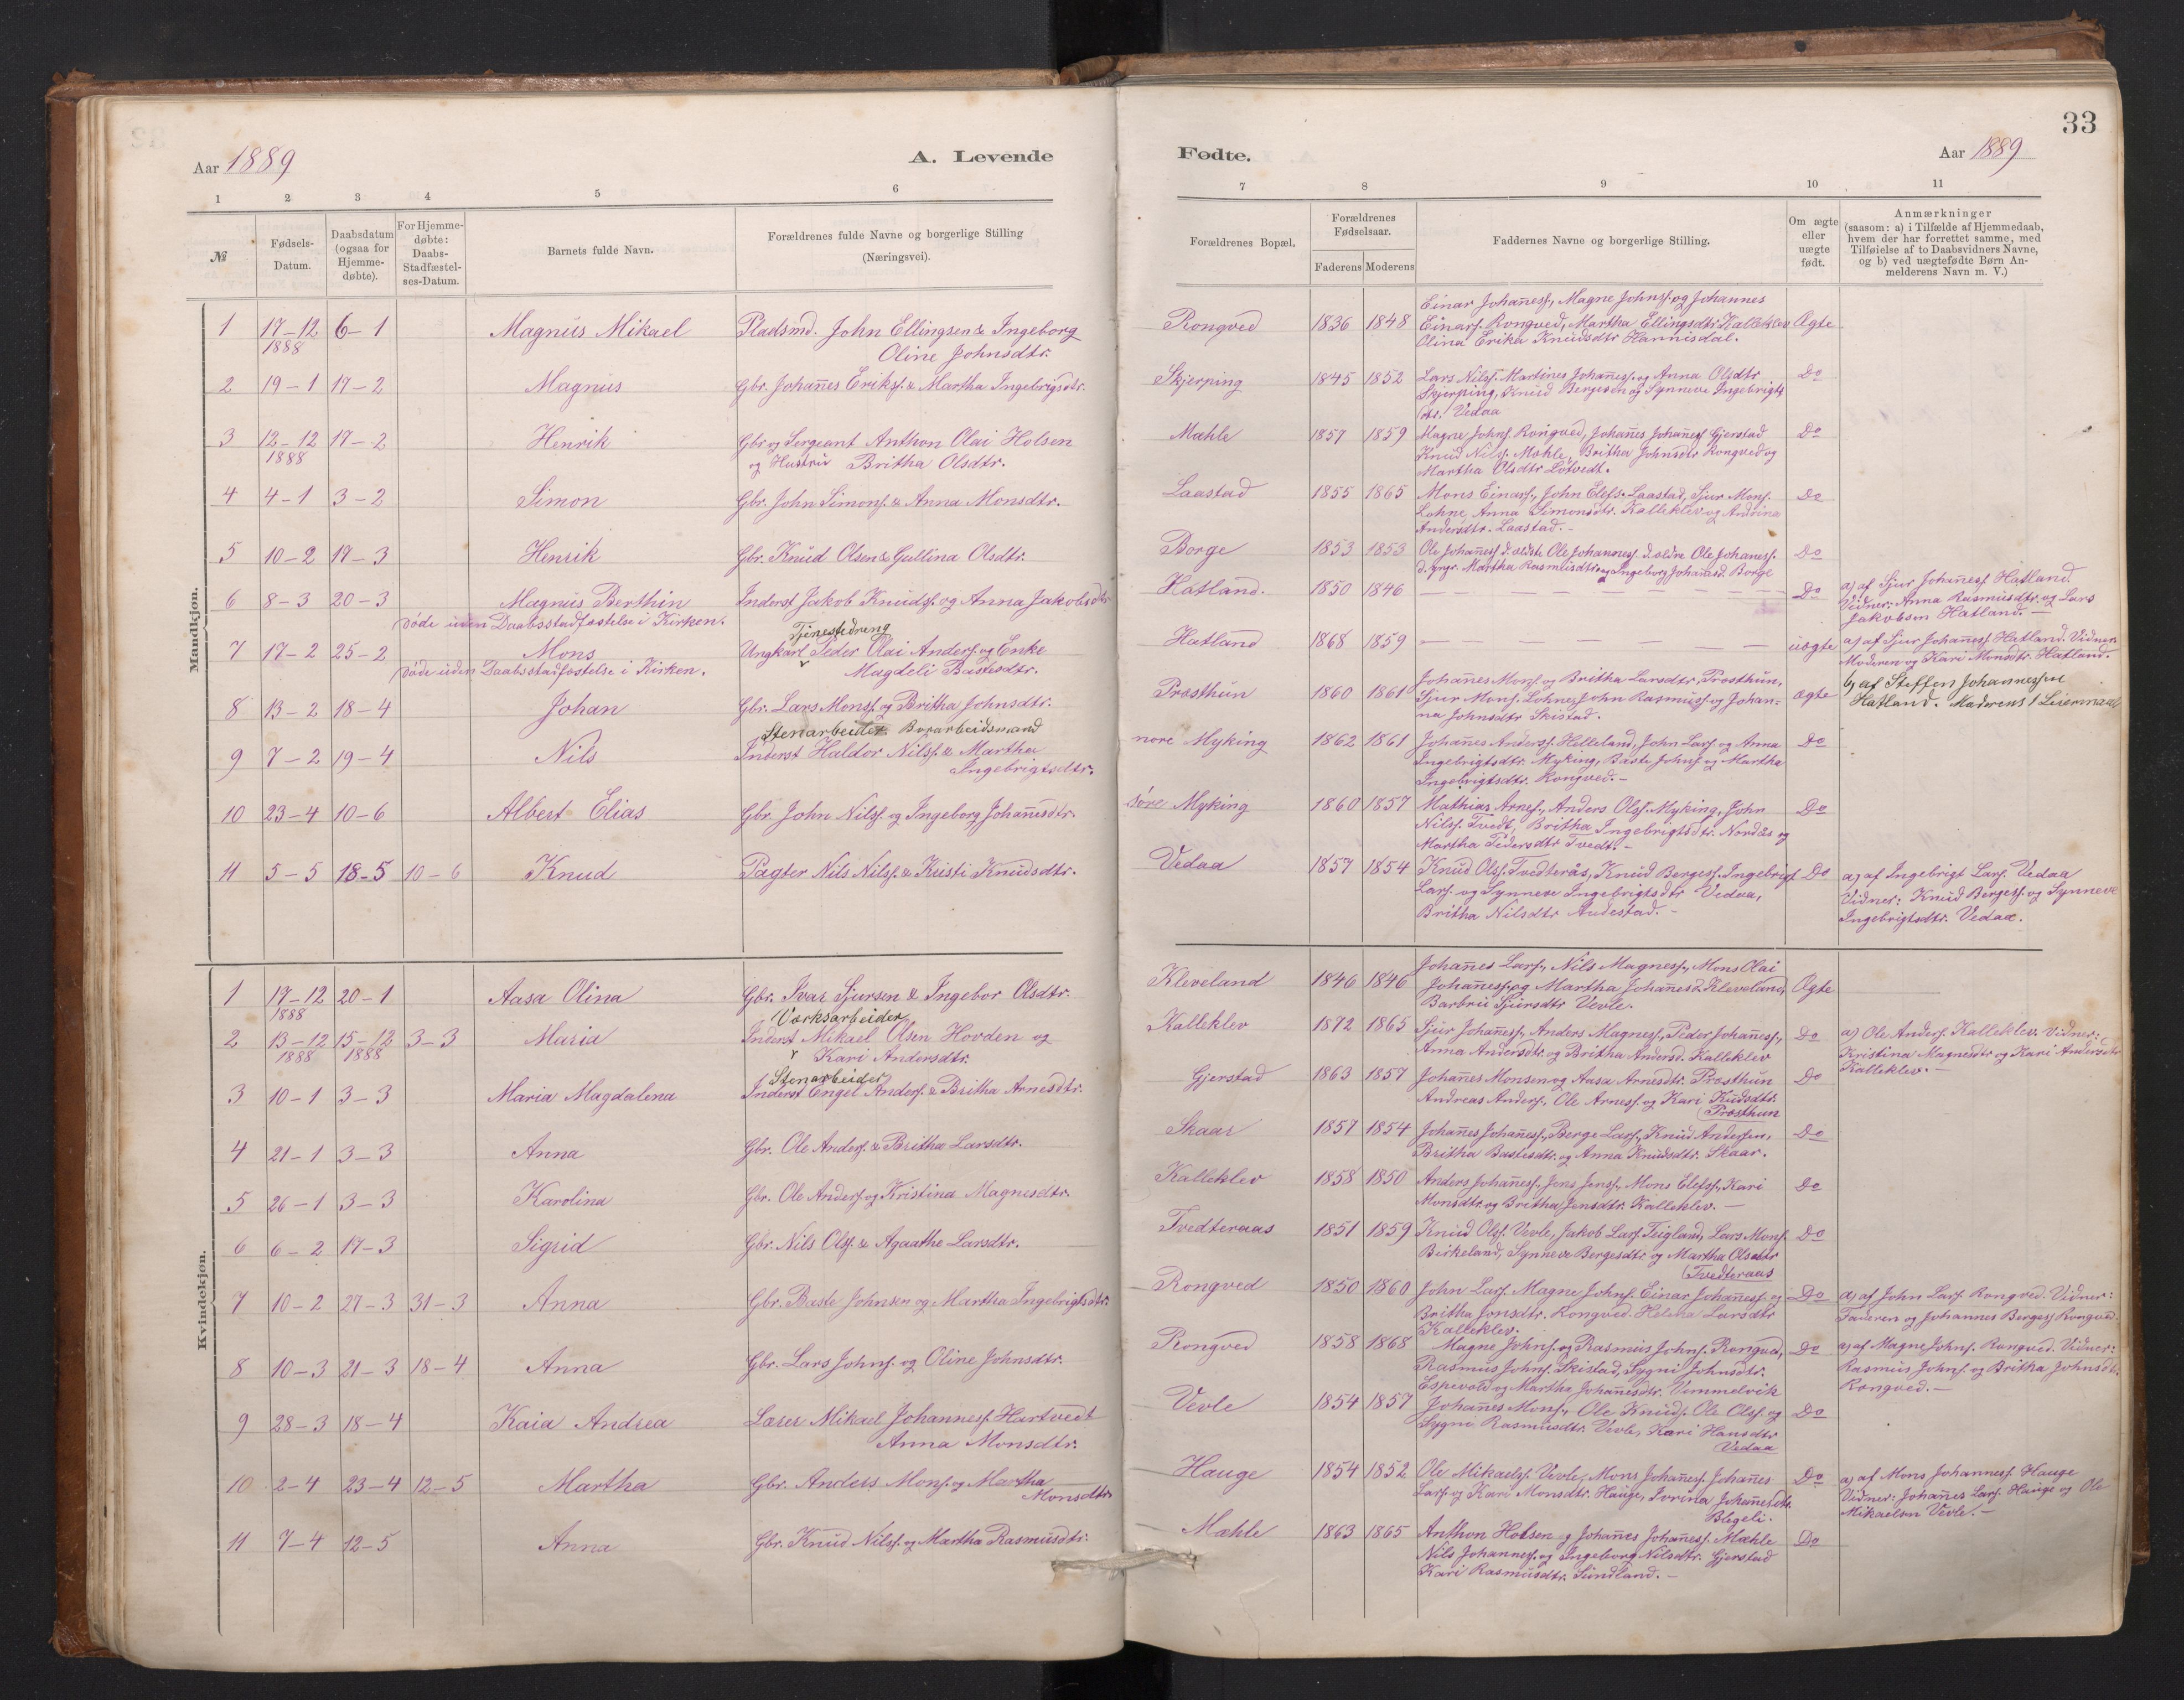 33
Aar 1889
A. Levende
Fødte.
Aar 1889
1 2 3 4 5 6
7 8 9 10 11
№
Fødsels-
Datum.
Daabsdatum
(ogsaa for
Hjemme-
døbte).
For Hjemme-
døbte:
Daabs-
Stadfæstel-
ses-Datum.
Barnets fulde Navn.
Forældrenes fulde Navne og borgerlige Stilling
(Næringsvei).
Forældrenes Bopæl.
Forældrenes
Fødselsaar.
Faderens Moderens
Faddernes Navne og borgerlige Stilling.
Om ægte
eller
uægte
født.
Anmærkninger
(saasom: a) i Tilfælde af Hjemmedaab,
hvem der har forrettet samme, med
Tilføielse af to Daabsvidners Navne,
og b) ved uægtefødte Børn An-
melderens Navn m. V.)
Mandkjøn.
1 17–12 6–1 Magnus Mikael Pladsmd. John Ellingsen & Ingeborg
1888 Oline Johnsdtr.
Rongved 1836 1848 Einar Johañess., Magne Johnss. og Johannes
Einars. Rongved, Martha Ellingsdtr. Kalleklev Ægte
Olina Erika Knudsdtr Hannisdal.
2 19–1 17–2 Magnus Gbr. Johañes Eriks. & Martha Ingebrigsdtr.
Skjerping 1845 1852 Lars Nilss. Martines Johañess. og Anna Olsdtr Do
Skjerping, Knud Bergeson og Synneve Ingebrigts
dtr. Vedaa
3 12–12 17–2 Henrik Gbr og Sergeant Anthon Olai Holsen
1888 og Hustru Britha Olsdtr.
Mæhle 1857 1859 Magne Johns. Rongved, Johañes Johañess Gjerstad Do
Knud Nilss. Mæhle, Britha Johnsdtr Rongved og
Martha Olsdtr Lötvedt.
4 4–1 3–2 Simon Gbr. John Simons. & Anna Monsdtr.
Laastad 1855 1865 Mons Einars., John Elefs. Laastad, Sjur Mons. Do
Lohne, Anna Simonsdtr. Kalleklev og Andrina
Andersdtr. Laastad.–
5 10–2 17–3 Henrik Gbr. Knud Olsen & Gullina Olsdtr.
Borge 1853 1853 Ole Johañess d. ældste, Ole Johanness. d. ældre Ole Johaness. Do
d. yngr. Martha Rasmusdtr og Ingeborg Johanesd. Borge
6 8–3 20–3 Magnus Berthin Inderst Jakob Knuds. og Anna Jakobsdtr
døde uden Daabsstadfæstelse i Kirken.
Hatland. 1850 1846 — — — — Do a) af Sjur Johañess. Hatland.
Vidner: Anna Rasmusdtr. og Lars
Jakobson Hatland.—
7 17–2 25–2 Mons Ungkarl Tjenestedreng Peder Olai Anders. og Enke
døde uden Daabsstadfæstelse i Kirken. Magdeli Bastesdtr.
Hatland 1868 1859 — — — uægte a) af Sjur Johañess. Hatland. Vidner
Moderen og Kari Monsdtr. Hatland.
b) af Steffen Johannessen
Hatland. Moderens 1 Leiermaal
8 13–2 18–4 Johan Gbr. Lars Monss. og Britha Johnsdtr.
Præsthun 1860 1861 Johañes Mons. og Britha Larsdtr, Præsthun, ægte
Sjur Mons. Lohne, John Rasmuss. og Johan-
na Johnsdtr Skistad.
9 7–2 19–4 Nils Stenarbeider
Inderst Haldor Nilss. & Martha
Ingebrigtsdtr.
nore Myking 1862 1861 Johañes Anderss. Helleland, John Lars. og Anna Do
Ingebrigtsdtr. Myking, Baste Johns. og Martha
Ingebrigtsdtr. Rongved.–
10 23–4 10–6 Albert Elias Gbr. John Nilss. og Ingeborg Johañesdtr.
søre Myking 1860 1857 Mathias Arnes., Anders Olss. Myking, John Do
Nilss. Tvedt, Britha Ingebrigtsdtr. Nordås og
Martha Pedersdtr Tvedt.–
11 5–5 18–5 10–6 Knud Pagter Nils Nilss. & Kristi Knudsdtr.
Vedaa 1857 1854 Knud Olss. Tvedterås, Knud Berges. Ingebrigt Do
Lars. og Synneve Ingebrigtsdtr Vedaa,
Britha Nilsdtr Andestad.–
a) af Ingebrigt Lars. Vedaa
Vidner: Knud Bergess. og Synneve
Ingebrigtsdtr. Vedaa.
Kvindekjøn.
1 17–12 20–1 Aasa Olina Gbr. Ivar Sjursen & Ingebor Olsdtr.
1888
Kleveland 1846 1846 Johañes Lars., Nils Magness., Mons Olai
Johañess. og Martha Johañesd. Kleveland, Ægte
Barbru Sjursdtr Vevle.
2 13–12 15–12 3–3 Maria Værksarbeider
1888 1888 Inderst Mikael Olsen Hovden og
Kari Andersdtr.
Kalleklev 1872 1865 Sjur Johañess., Anders Magness., Peder Johañess., Do
Anna Andersdtr. og Britha Andersd. Kalleklev
a) Ole Anders. Kalleklev. Vidner:
Kristina Magnesdtr og Kari Andersdtr
Kalleklev.–
3 10–1 3–3 Maria Magdalena Stenarbeider
Inderst Engel Anders. & Britha Arnesdtr.
Gjerstad 1863 1857 Johañes Monsen og Aasa Arnesdtr. Præsthun Do
Andreas Anders., Ole Arness. og Kari Kudsdtr.
Præsthun
4 21–1 3–3 Anna Gbr. Ole Anders. & Britha Larsdtr.
Skaar 1857 1854 Johañes Johañess., Berge Lars., Knud Andersen, Do
Britha Bastesdtr. og Anna Knudsdtr. Skaar.
5 26–1 3–3 Karolina Gbr. Ole Anders. og Kristina Magnesdtr.
Kalleklev 1858 1850 Anders Johañess., Jens Jenss., Mons Elefs., Kari Do
Monsdtr. og Britha Jensdtr. Kalleklev.–
6 6–2 17–3 Sigrid Gbr. Nils Olss. & Agaathe Larsdtr.
Tvedteraas 1851 1859 Knud Olss. Vevle, Jakob Lars. Teigland, Lars Mons. Do
Birkeland, Synneve Bergesdtr og Martha Olsdtr
Tvedteraas
7 10–2 27–3 31–3 Anna Gbr. Baste Johnsen og Martha Ingebrigtsdtr.
Rongved 1850 1860 John Lars. Magne Johns. Einar Johañess. og Do
Britha Jonsdtr. Rongved. Helena Larsdtr
Kalleklev.
a) af John Lars. Rongved. Vidner:
Faderen og Johannes Bergess Rongved.
8 10–3 21–3 18–4 Anna Gbr. Lars Johns. og Oline Johnsdtr.
Rongved 1858 1868 Magne Johns. og Rasmus Johns. Rongved, Do
Rasmus Johns. Skistad, Sygni Johnsdtr.
Espevold og Martha Johañesdtr. Vemmelvik
a) af Magne Johns. Rongved. Vidner:
Rasmus Johns. og Britha Johnsdtr.
Rongved.–
9 28–3 18–4 Kaia Andrea Lærer Mikael Johanness. Hartvedt
Anna Monsdtr.
Vevle 1854 1857 Johañes Mons., Ole Knuds. Ole Olss. og Do
Sygni Rasmusdtr. Vevle, Kari Hansdtr
Vedaa
10 2–4 23–4 12–5 Martha Gbr. Anders Mons. og Martha
Monsdtr.
Hauge 1854 1852 Ole Mikaels. Vevle, Mons Johañess. Johañes Do
Lars. og Kari Monsdtr. Hauge, Ivrina Johañesdtr.
Blegeli.
a) af Mons Johanness. Hauge
Vidner: Johañes Lars. Hauge og Ole
Mikaelson Vevle.–
11 7–4 12–5 Anna Gbr. Knud Nilss. og Martha Rasmusdtr.
Mæhle 1863 1865 Anthon Holsen og Johañes Johañess. Mæhle Do
Nils Johanness. og Ingeborg Nilsdtr. Gjerstad
Kari Rasmusdtr. Sundland.–